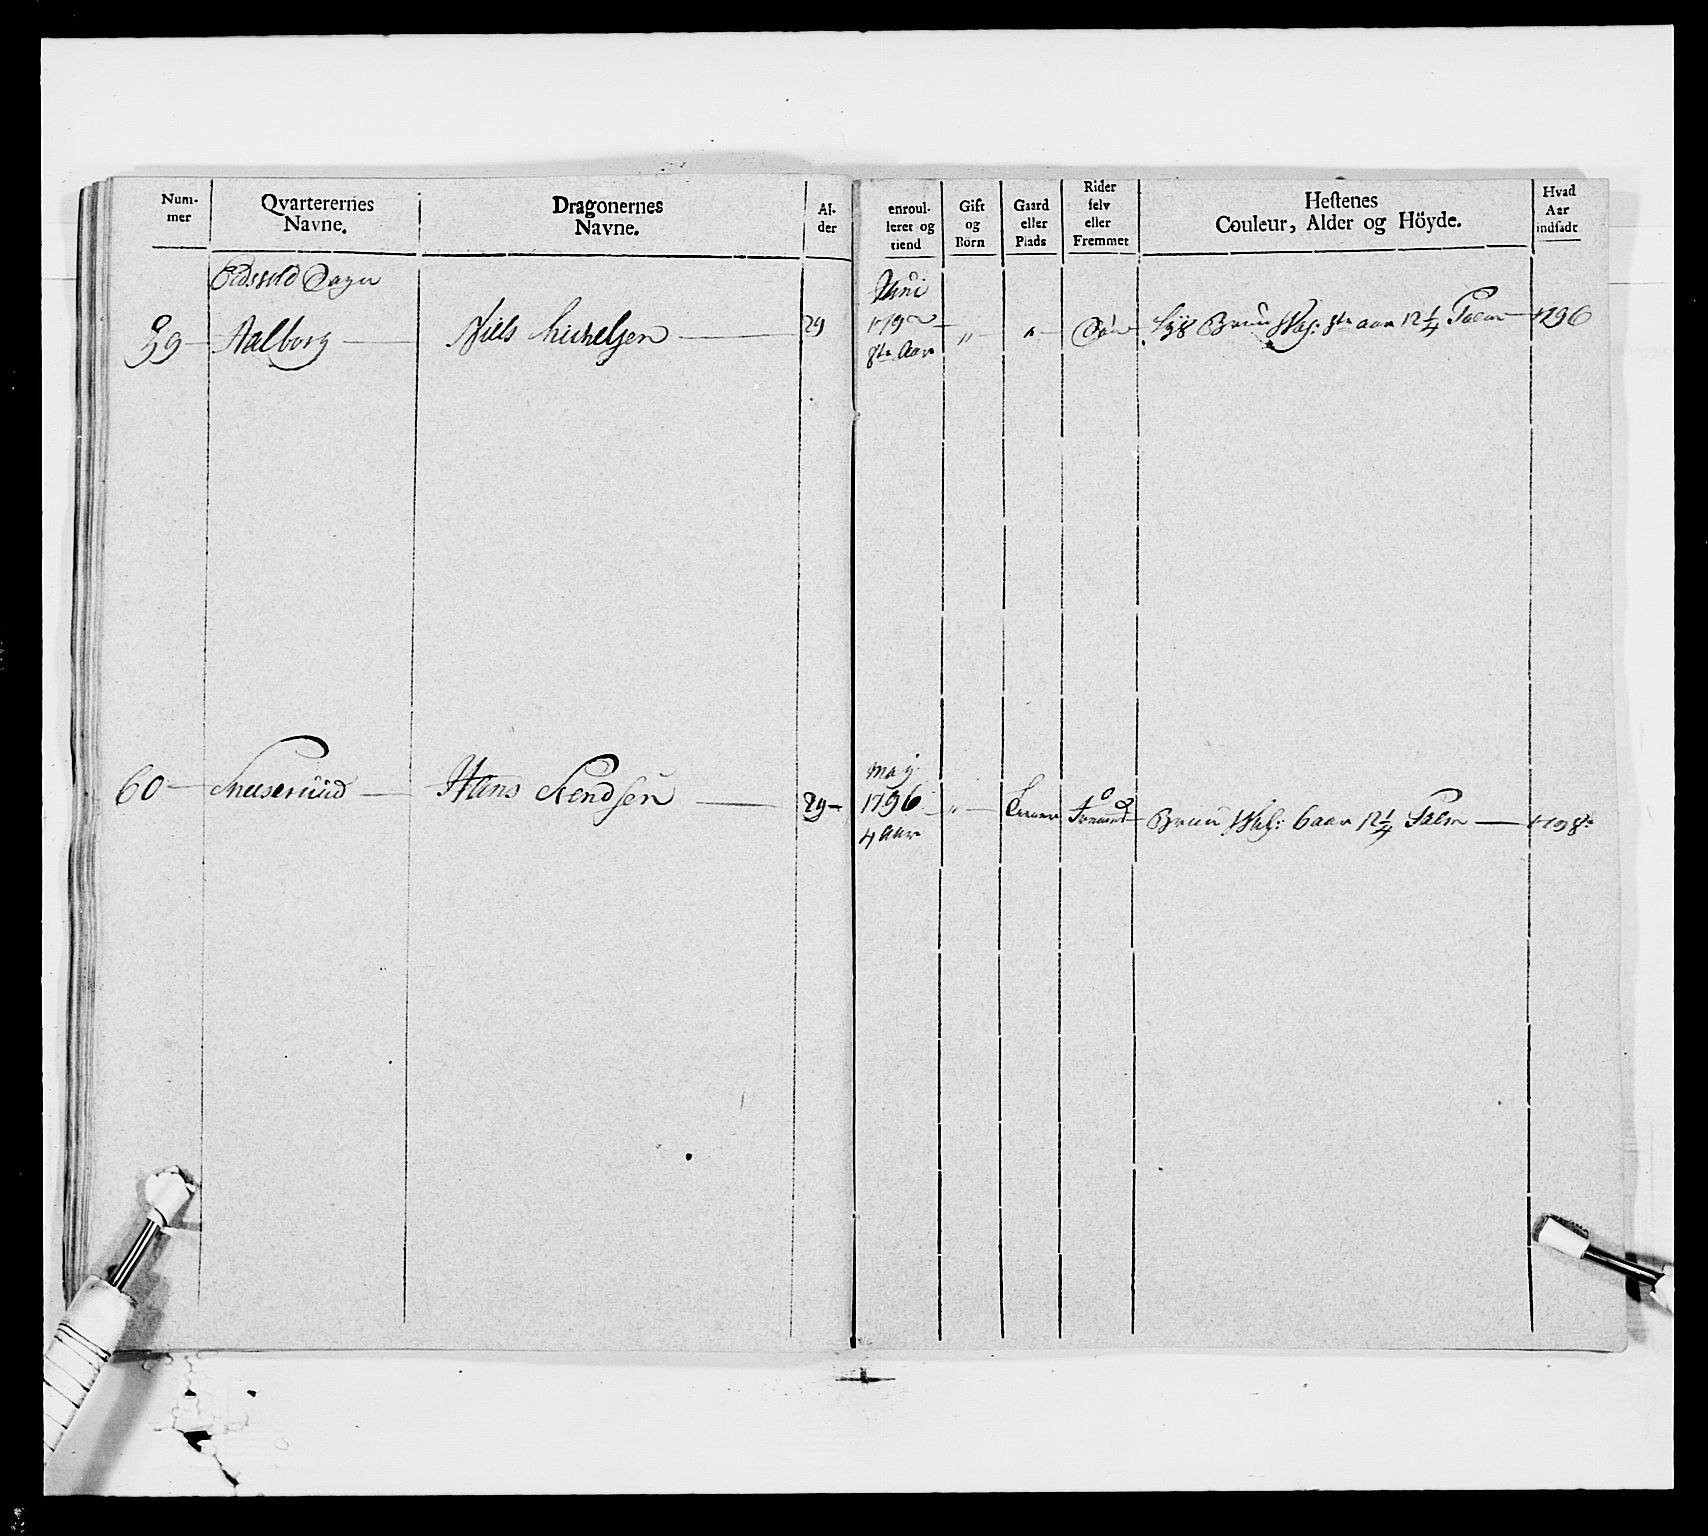 Num-
mer
Qvarterernes
Navne.
Dragonernes
Navne.
Al-
der
enroul-
leret og
tiend
Gift
og
Börn
Gaard
eller
Plads
Rider
selv
eller
Fremmet
Hestenes
Couleur, Alder og Höyde.
Hvad
Aar
indsadt
Eidsvold Sogn
59 Aalborg Niels Michelsen 29
Juni
179
8te Aar
" " Søn
Brun Wal: 8te aar 12 1/4 Palm 1796
60 Hans Svendsen 29
May
1796
4 Aar
" Fremed Bruun Wal: 6 aar 12 1/4 Palm 1798